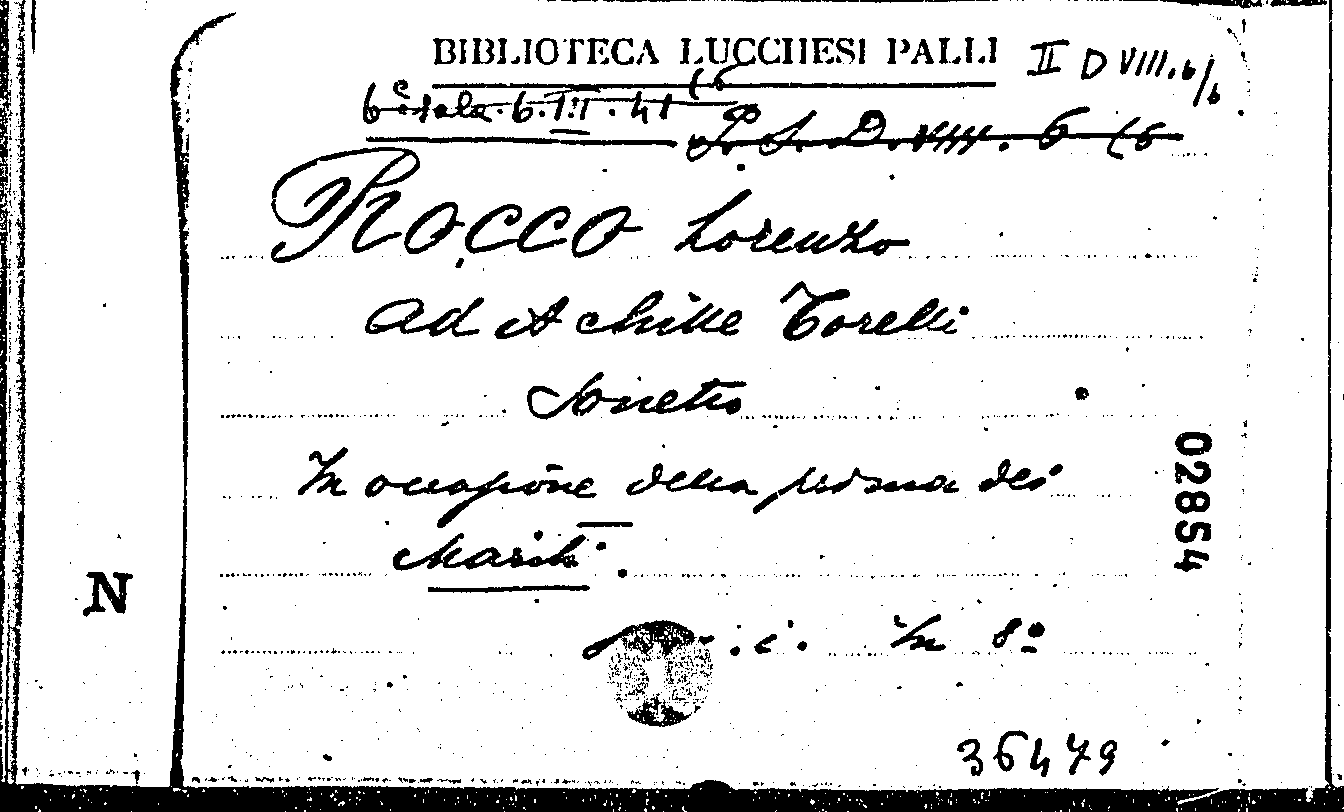 BIBLIOTECA LUCCHESI PALLI
II D VIII. 6/6
6ª sala. 6. III. 41 (6
P. S. D. VIII. 6 (6
ROCCO Lorenzo
ad Achille Torelli
Sonetto
In occasione della prima dei
Mariti.
02854
N
In 8º
36479